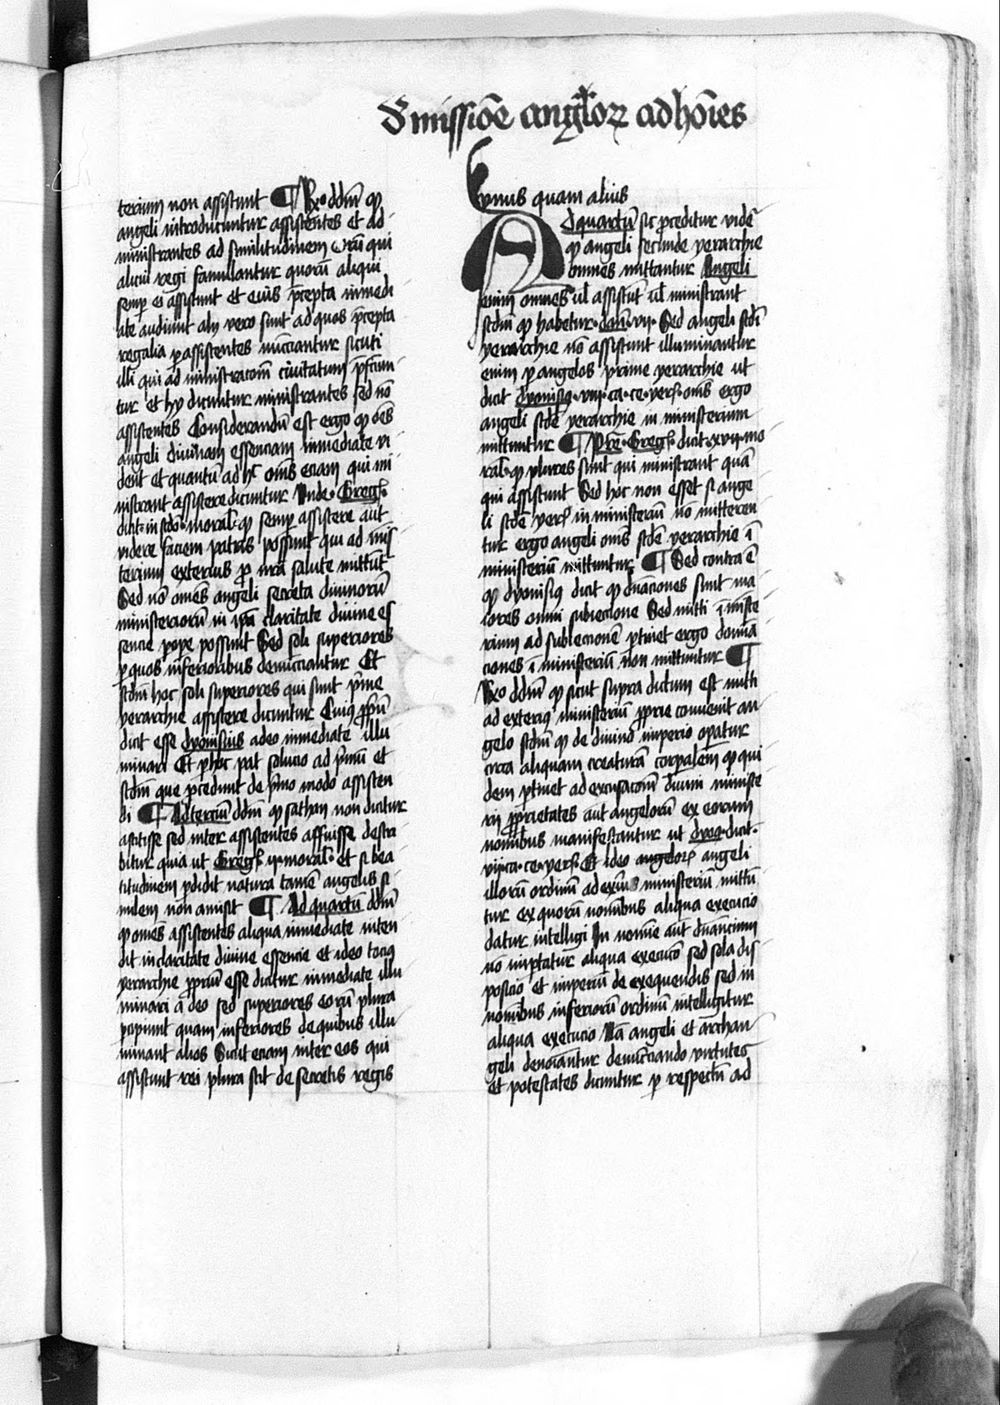 De missiōe angl̄oꝝ ad hoīes
terium non assistunt ¶ Rꝫo ddm̄ ꝙ
angeli introducuntur assistentes et ad
ministrantes ad similitudinem eoꝝ qui
alicui regi famulantur quorū aliqui
semꝑ ei assistunt et eius p̄cepta inmedi
ate audiunt alij vero sunt ad quos p̄cepta
regalia ꝑ assistentes nūcciantur sicuti
illi qui ad ministracom̄ ciuitatum p̄ficiun
tur et hy dicuntur ministrantes sed nō
assistentes Considerandū est ergo ꝙ oēs
angeli diuinam essenciam inmediate vi
dent et quantū ad hͨ om̄s eciam qui mi
nistrant assistere dicuntur Vnde Greg̉
dicit in scd̄o moral̉ ꝙ semꝑ assistere aut
videre faciem patris possunt qui ad mīs
terium exterius ꝓ nr̄a salute mittūt̉
Sed nō omēs angeli secreta diuinorū
ministeriorū in ip̄a claritate diuine es
sencie ꝑcipe possunt Sed soli superiores
ꝑ quos inferioribus denūcciantur Et
scd̄m hoc soli superiores qui sunt p̄me
yerarchie assistere dicuntur Cuiꝰ ꝓp̄um
dicit esse dyonisius a deo inmediate illu
minari Et ꝑ hoc pat̉ solucio ad p̄mū et
scd̄m que ꝓcedunt de p̄mo modo assisten
di ¶ Ad tercium ddm̄ ꝙ sathan non dicitur
astitisse sed inter assistentes affuisse descri
bitur quia ut Greg̉ ij moral̉ et si bea
titudinem ꝑdidit natura tamē angelis si
milem non amisit ¶ Ad quartū ddm̄
ꝙ omēs assistentes aliqua inmediate inten
dit in claritate diuine essencie et ideo tociꝰ
yerarchie ꝓprium esse dicitur inmediate illu
minari a deo sed superiores eorū plura
ꝑcipiunt quam inferiores de quibus illu
minant alios Sicut eciam inter eos qui
assistunt regi plura scit de secretis regis
vnus quam alius
Ad quartū sic ꝓceditur videt̉
ꝙ angeli secunde yerarchie
omnes mittantur Angeli
enim omnes ul̉ assistūt ul̉ ministrant
scd̄m ꝙ habetur dan̄ vij Sed angeli scd̄e
yerarchie nō assistunt illuminantur
enim ꝑ angelos prime yerarchie ut
dicit dyonisiꝰ viij ca ce yerͨ om̄s ergo
angeli scd̄e yerarchie in ministerium
mittuntur ¶ Pret̉ Greg̉ dicit xvij mo
ral̉ ꝙ plures sunt qui ministrant quā
qui assistunt Sed hoc non esset si ange
li scd̄e yerͨ in ministeriū nō mitteren
tur ergo angeli om̄s scd̄e yerarchie ī
ministeriū mittuntur ¶ Sed contra ē
ꝙ dyonisiꝰ dicit ꝙ dn̄aciones sunt ma
iores omni subiectione Sed mitti ī miste
rium ad subiectionē ꝑtinet ergo domīa
ciones ī ministeriū non mittuntur ¶
Rꝫo ddm̄ ꝙ sicut supra dictum est mitti
ad exteriꝰ ministerium ꝓprie conuenit an
gelo scd̄m ꝙ de diuino imperio oꝑatur
circa aliquam creaturā corꝑalem ꝙ qui
dem ꝑtinet ad execucōm̄ diuini ministe
rij ꝓprietates aut̉ angelorū ex eorum
nōibus manifestantur ut dyoꝰ dicit
vij ca ce yerͨ Et ideo angeloꝝ angeli
illorū ordinū ad exͥus ministerium mittū
tur ex quorū nominibus aliqua execucio
datur intelligi In nomīe aut̉ dn̄acionū
nō importatur aliqua execucō sed sola dis
posicio et imperiū de exequendis sed in
nominibus inferiorū ordinū intelligitur
aliqua execucio Nā angeli et archan
geli denoīantur denūcciando virtutes
et potestates dicuntur ꝑ respectū ad